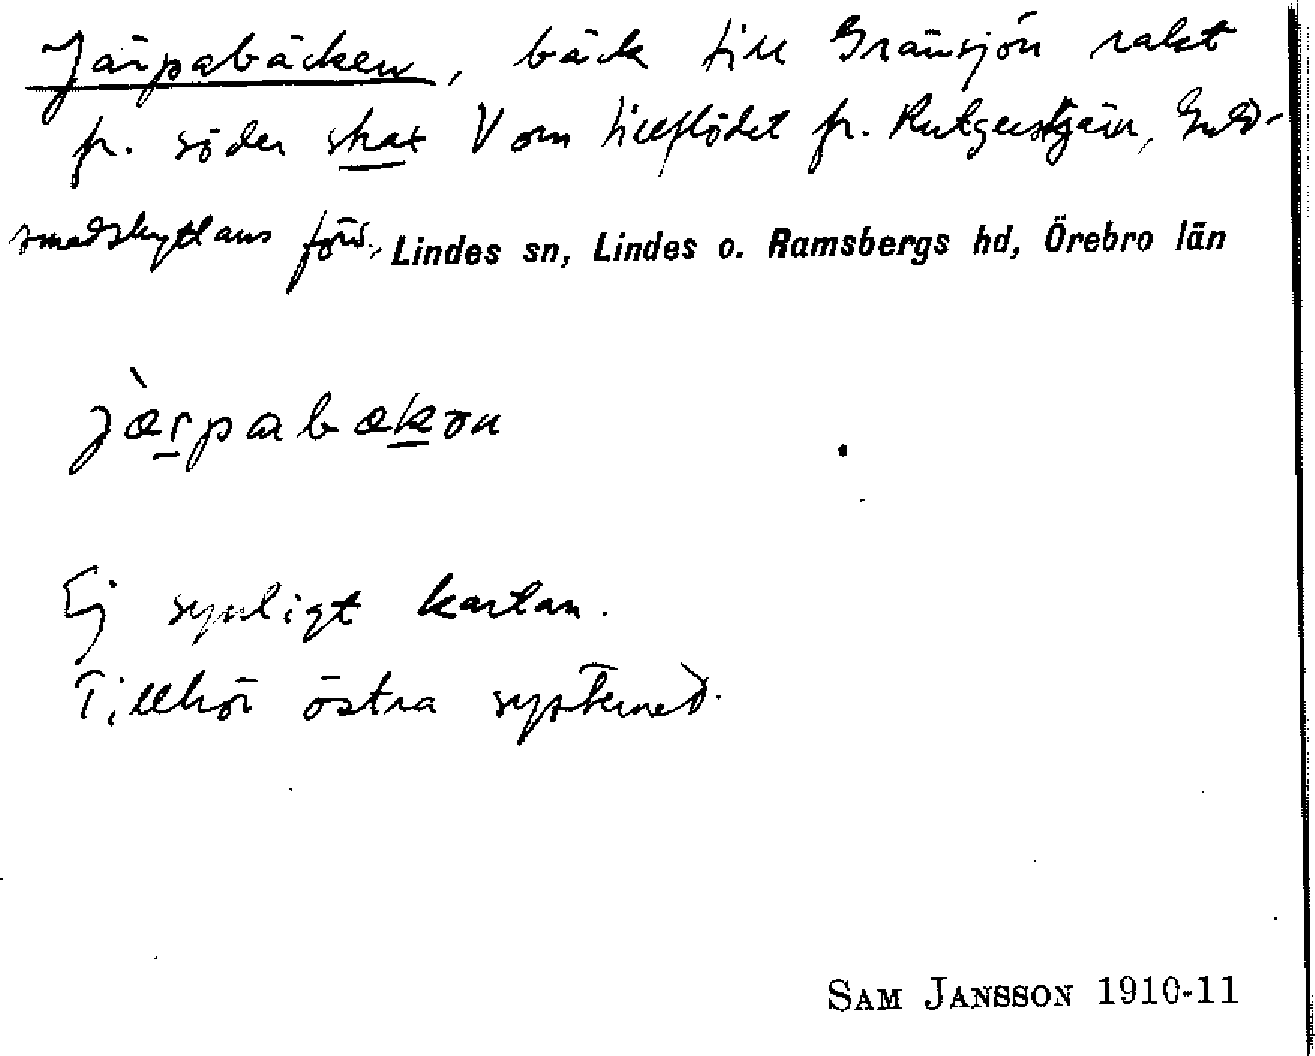 Järpabäcken, bäck till Gränsjön rakt
fr. söder strax V om tillflödet fr. Rutgerstjärn, Guld-
smedshyttans förs., Lindes sn, Lindes o. Ramsbergs hd, Örebro län
jæ̀rpabækən
Ej synligt kartan.
Tillhör östra systemet.
SAM JANSSON 1910-11